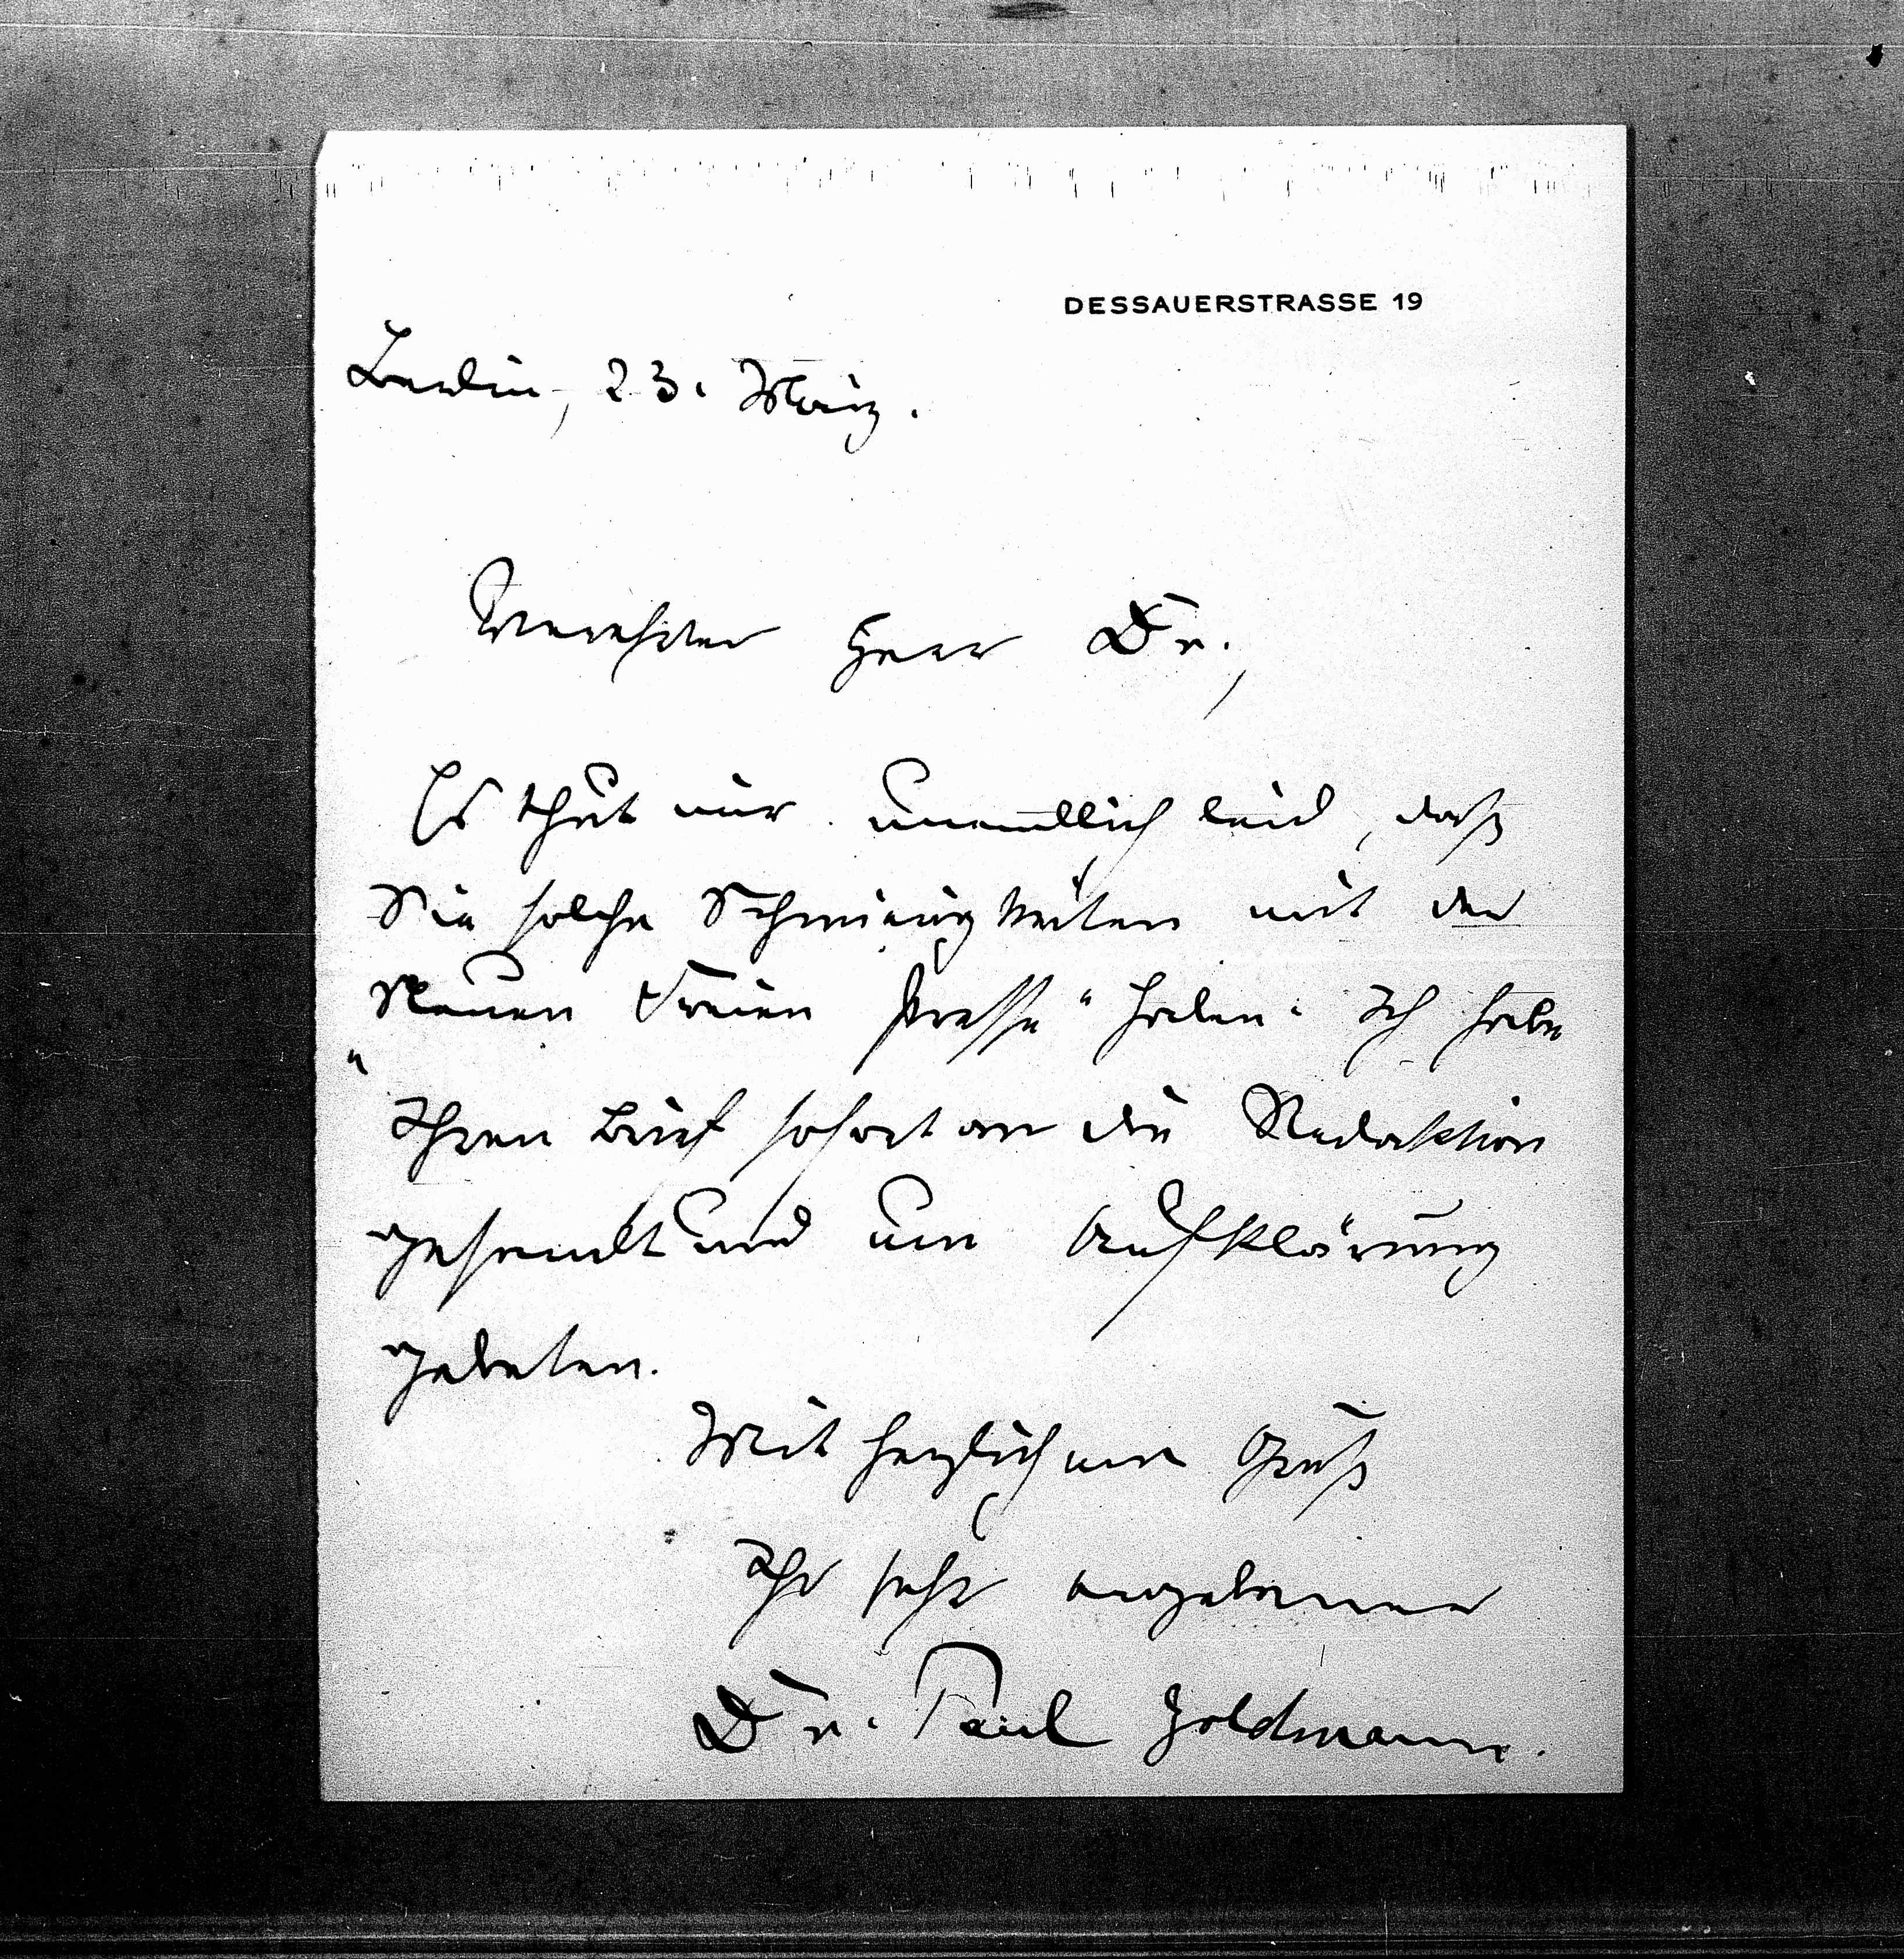 DESSAUERSTRASSE 19
Berlin, 23. März.
Verehrter Herr Dr.,
Es thut mir unendlich leid, daß
Sie solche Schwierigkeiten mit der
„Neuen Freien Presse“ haben. Ich habe
Ihren Brief sofort an die Redaktion
gesandt und um Aufklärung
gebeten.
Mit herzlichem Gruß
Ihr sehr ergebener
Dr. Paul Goldmann.